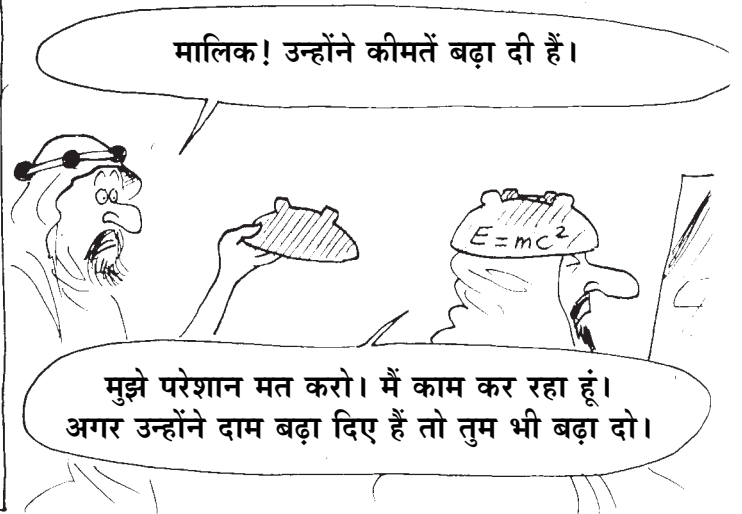 मालिक! उन्होंने कीमतें बढ़ा दी हैं।
E=mc²
मुझे परेशान मत करो। मैं काम कर रहा हूं।
अगर उन्होंने दाम बढ़ा दिए हैं तो तुम भी बढ़ा दो।